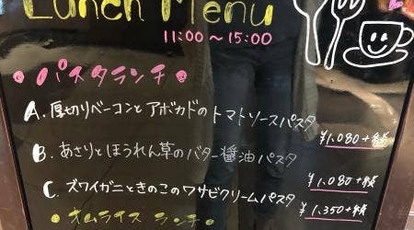 Lunch Menu
11:00～15:00
パスタランチ
A. 厚切りベーコンとアボカドのトマトソースパスタ
¥1.080+税
B. あさりとほうれん草のバター醤油パスタ
¥1.080+税
C. ズワイガニときのこのワサビクリームパスタ
¥1.350+税
オムライスランチ